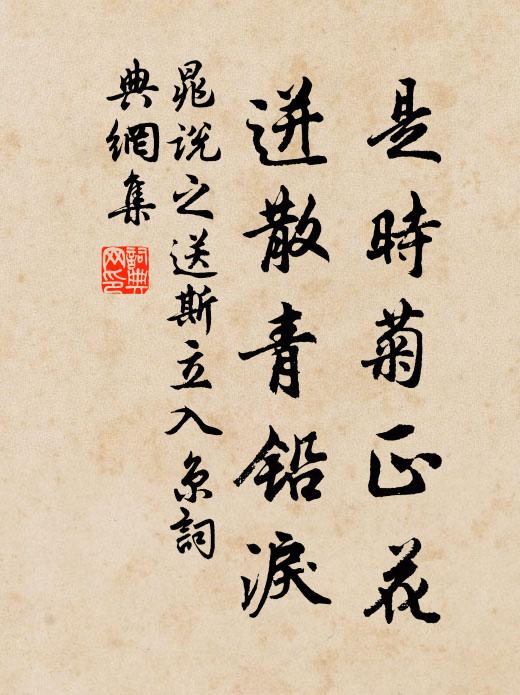 是時菊正花
迸散青鉛淚
晁說之送斯立入京詞
典網集
詞典
网印